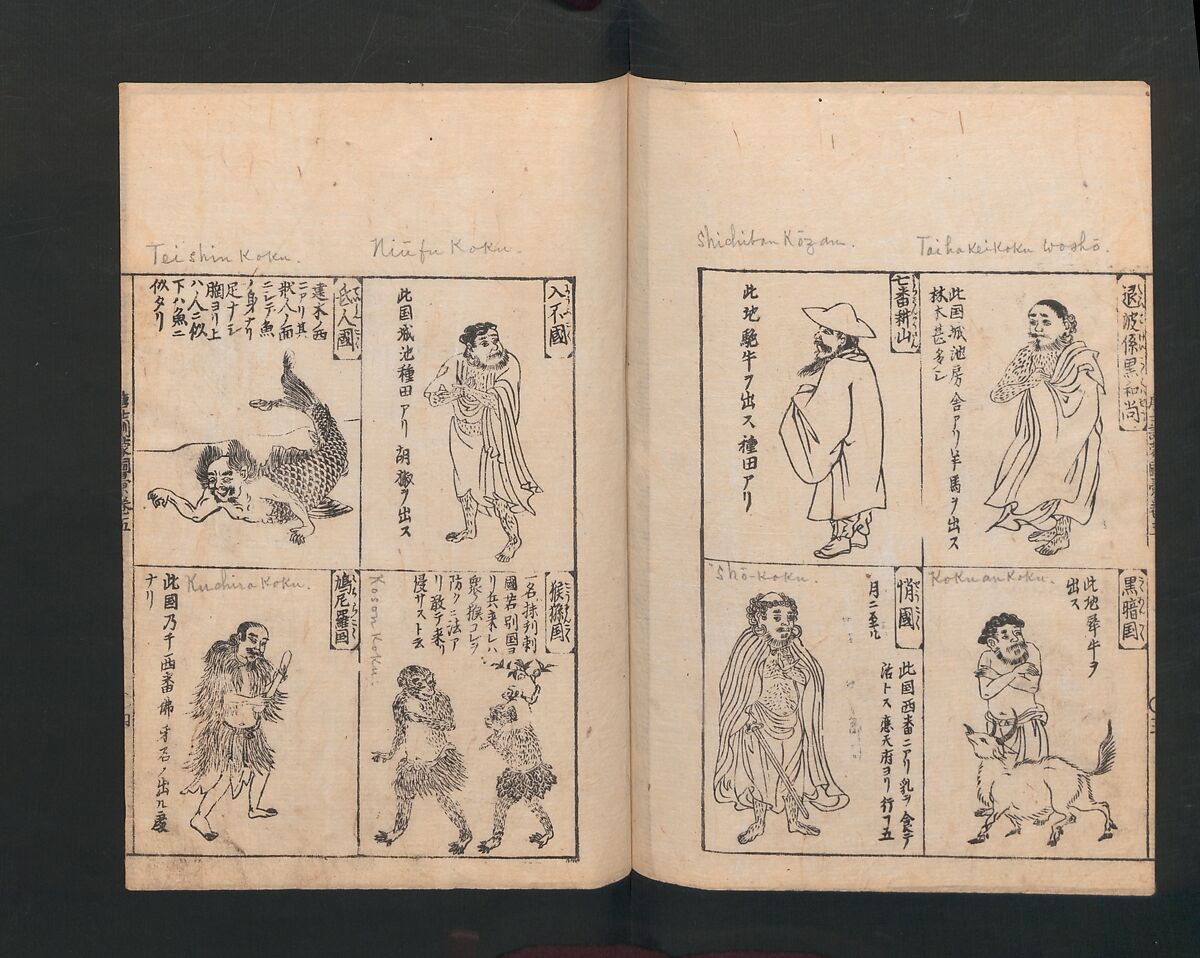 Taihakeikoku Woshō.
退波係黒和尚
此国城池房舎アリ羊馬ヲ出ス
林木甚多シ
Shichiban Kōzan.
七番耕山
此地駝牛ヲ出ス種田アリ
Kokuan Koku.
黒暗国
此地犀牛ヲ
出ス
Shō-Koku.
悄國
此国西番ニアリ乳ヲ食テ
活トス應天府ヨリ行ヿ五
月ニ至ル
Niūfu Koku.
入不國
此国城池種田アリ胡椒ヲ出ス
Teishin Koku.
氐人國
建木ノ西
ニアリ其
状人ノ面
ニシテ魚
ノ身ナリ
足ナシ
胸ヨリ上
ハ人ニ似
下ハ魚ニ
似タリ
Koson Koku.
猴猻国
リ兵来レハ
衆猴コレヲ
防クニ法ア
リ敢テ来リ
侵サスト云
Kuchira Koku.
鳩尼羅国
此國乃千西番佛
ナリ